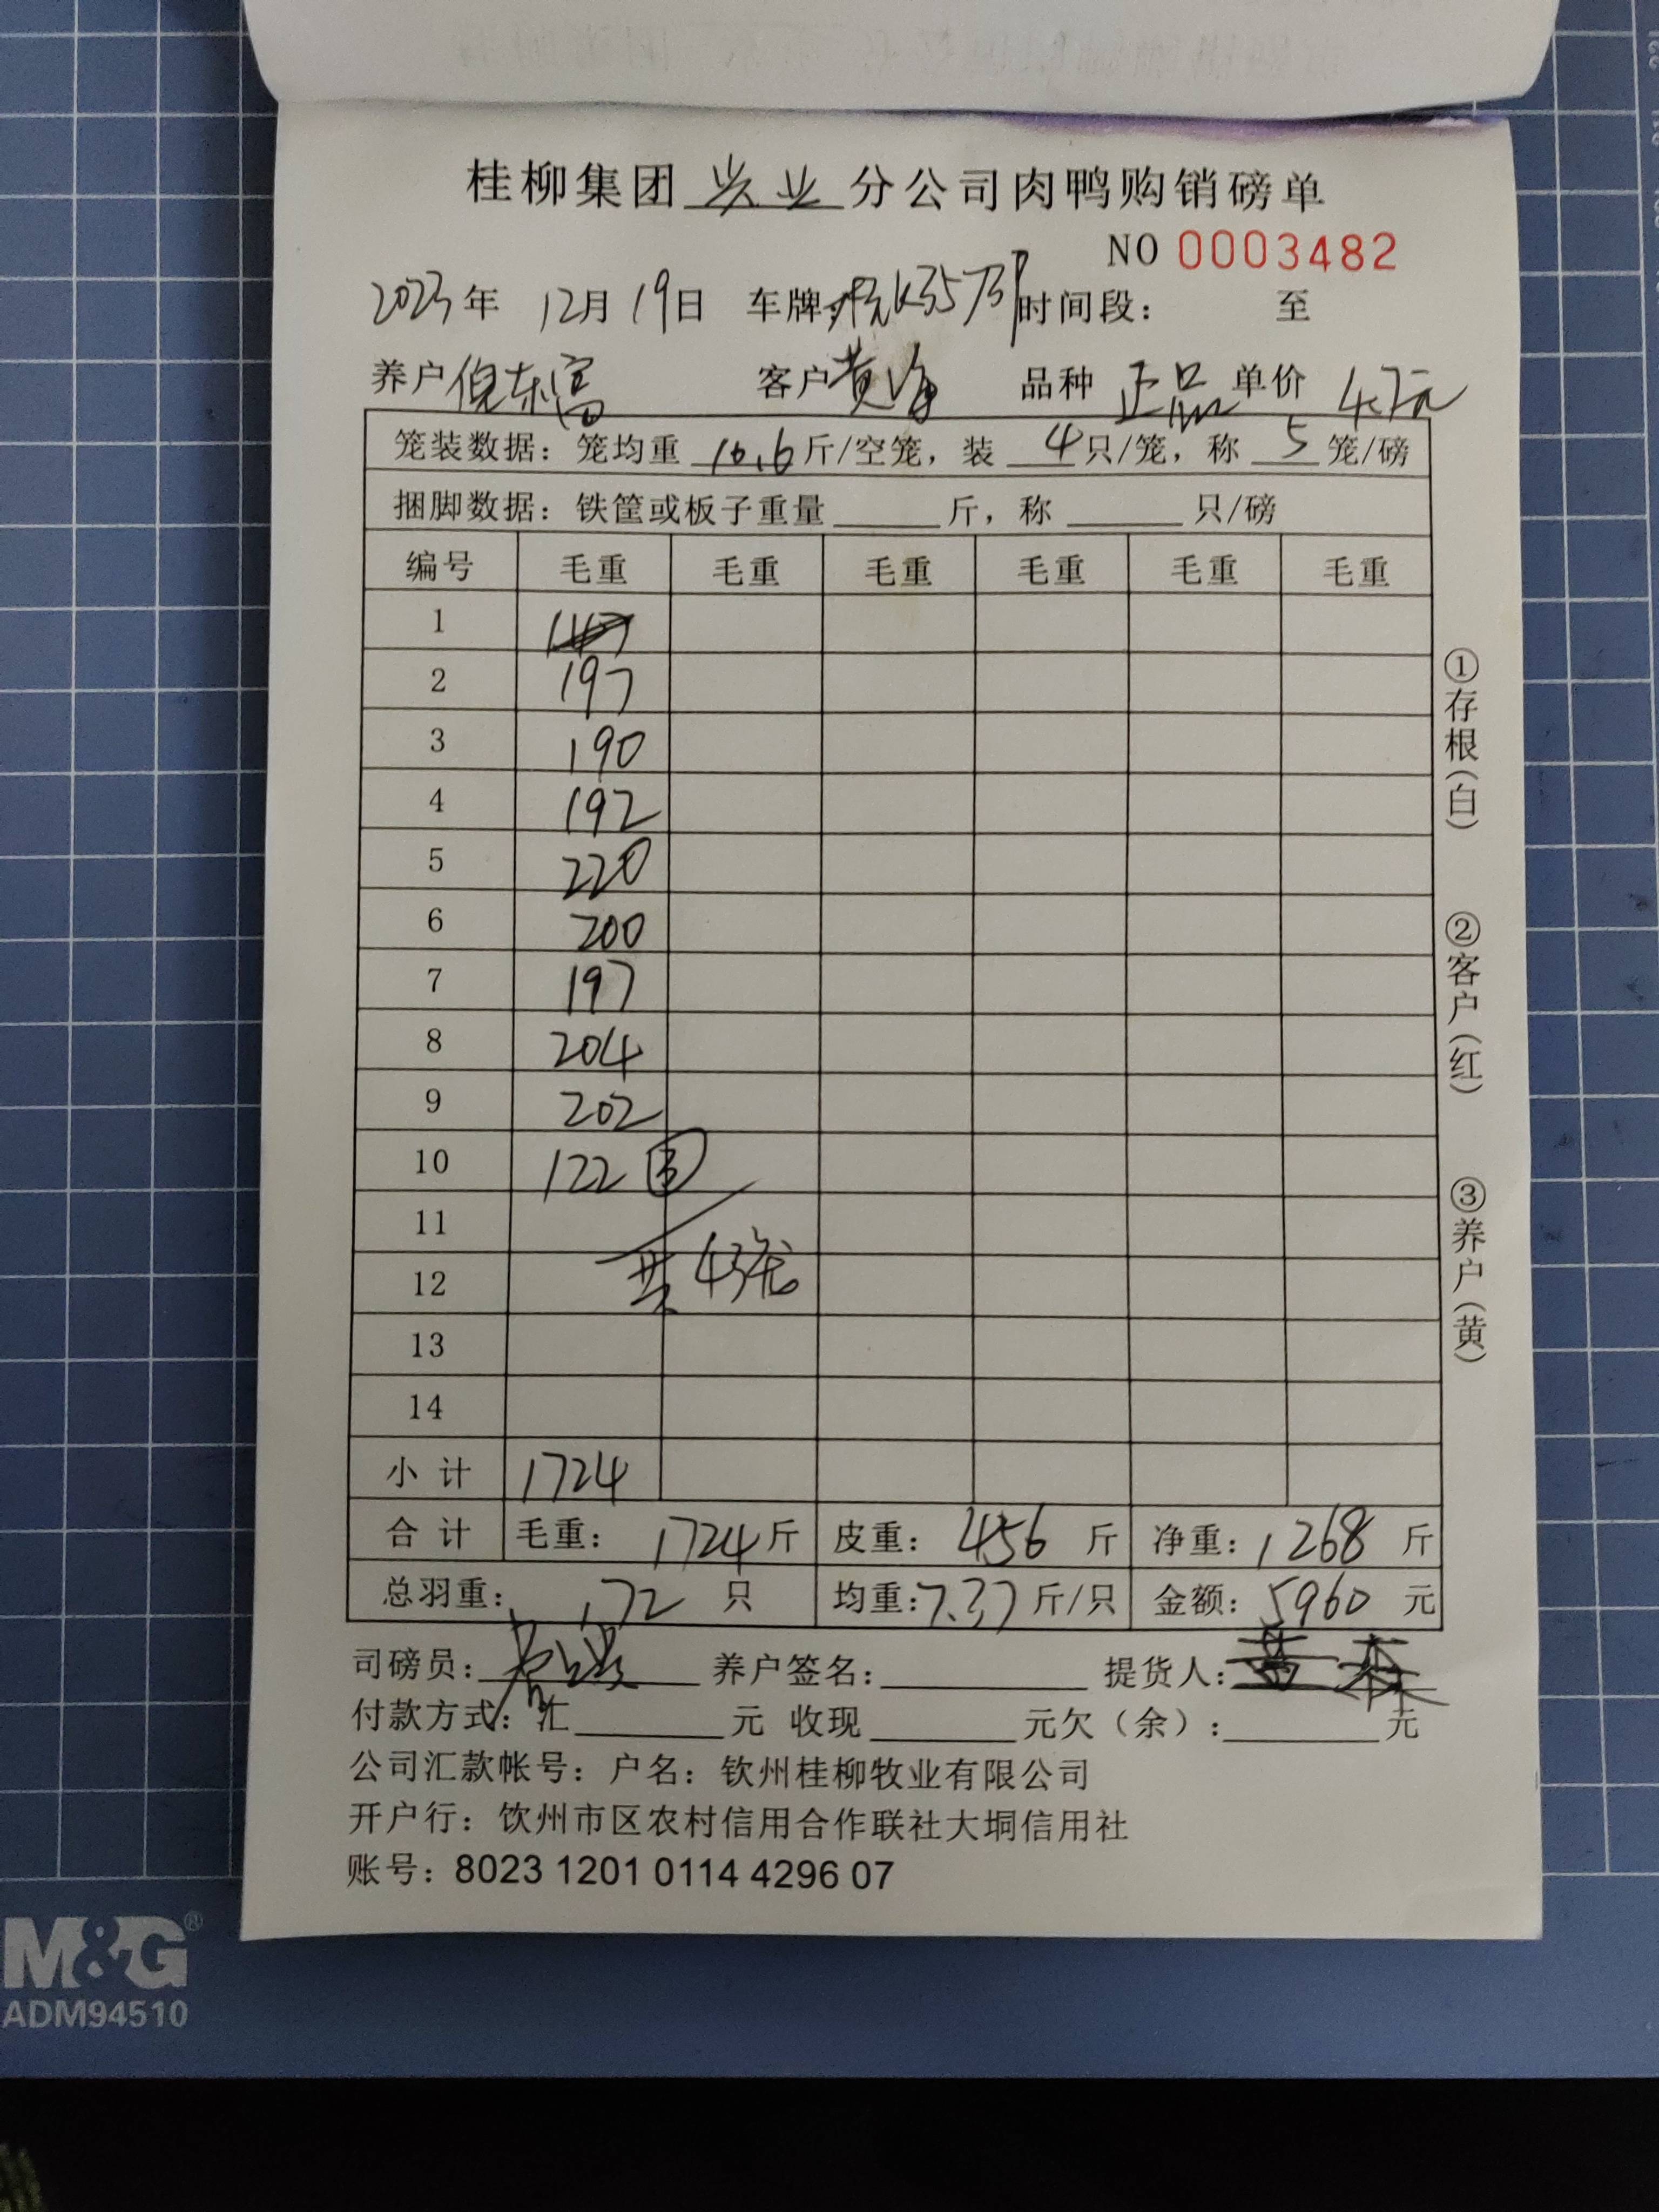 桂柳集团 兴业 分公司肉鸭购销磅单
NO 0003482
2023年 12月19日 车牌 时间段： 至
养户 倪东富 客户 黄海 品种 正品 单价 4.7元
笼装数据：笼均重 10.6 斤/空笼，装 4 只/笼，称 5 笼/磅
捆脚数据：铁筐或板子重量 斤，称 只/磅
编号 毛重 毛重 毛重 毛重 毛重 毛重
1
2 197
3 190
4 192
5 220
6 200
7 197
8 204
9 202
10 122 ③
11
12 共43笼
13
14
小计 1724
合计 毛重：1724斤 皮重：456斤 净重：1268斤
总羽重：172只 均重：7.37斤/只 金额：5960元
司磅员： 养户签名： 提货人：
付款方式：汇 元 收现 元欠（余）： 元
公司汇款帐号：户名：钦州桂柳牧业有限公司
开户行：饮州市区农村信用合作联社大垌信用社
账号：8023 1201 0114 4296 07
①存根（白）
②客户（红）
③养户（黄）
M&G®
ADM94510